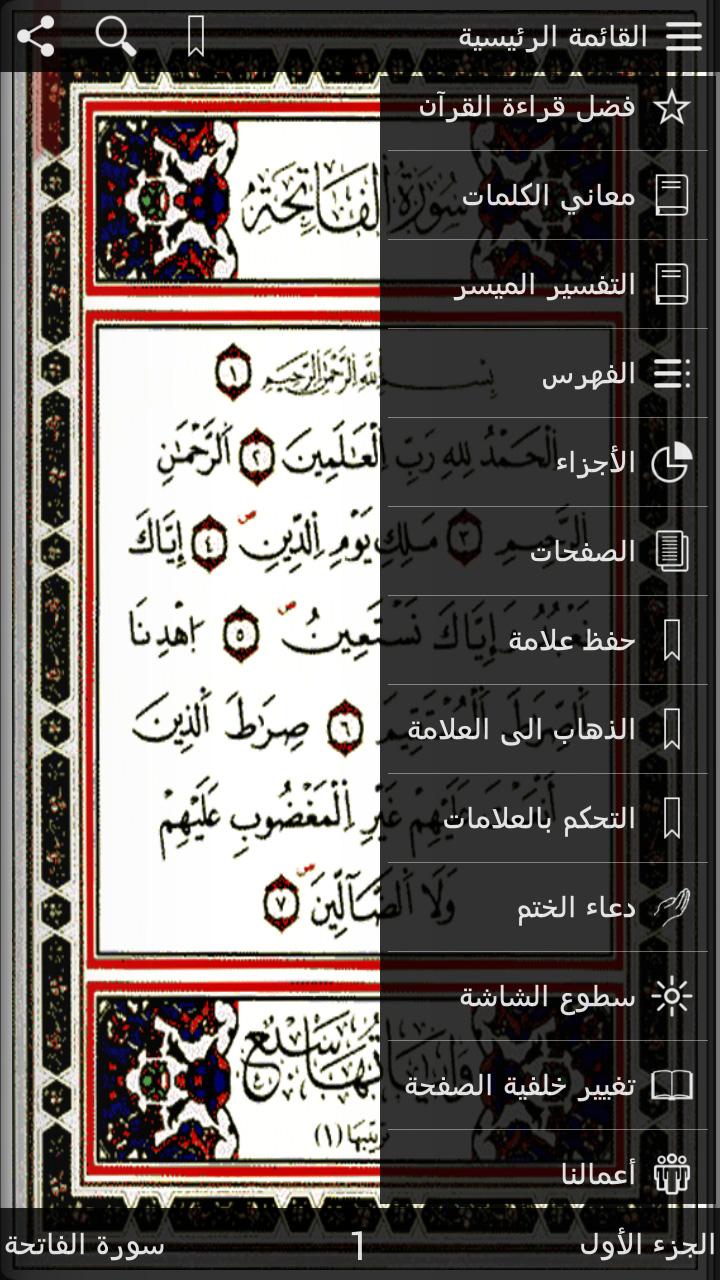 القائمة الرئيسية
فضل قراءة القرآن
معاني الكلمات
التفسير الميسر
الفهرس
الأجزاء
الصفحات
حفظ علامة
الذهاب الى العلامة
التحكم بالعلامات
دعاء الختم
سطوع الشاشة
تغيير خلفية الصفحة
أعمالنا
سُورَةُ الْفَاتِحَةِ
بِسْمِ اللَّهِ الرَّحْمَٰنِ الرَّحِيمِ ١
الْحَمْدُ لِلَّهِ رَبِّ الْعَٰلَمِينَ ٢ الرَّحْمَٰنِ
الرَّحِيمِ ٣ مَٰلِكِ يَوْمِ الدِّينِ ٤ إِيَّاكَ
نَعْبُدُ وَإِيَّاكَ نَسْتَعِينُ ٥ اهْدِنَا
الصِّرَٰطَ الْمُسْتَقِيمَ ٦ صِرَٰطَ الَّذِينَ
أَنْعَمْتَ عَلَيْهِمْ غَيْرِ الْمَغْضُوبِ عَلَيْهِمْ
وَلَا الضَّآلِّينَ ٧
وَآيَاتُهَا سَبْعٌ
تَرْتِيبُهَا (١)
الجزء الأول
1
سورة الفاتحة